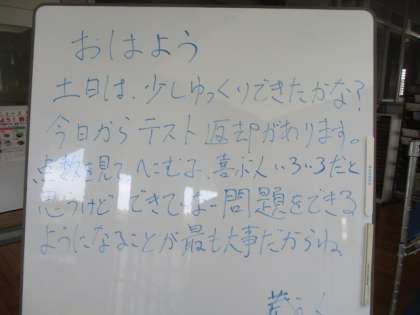 おはよう
土日は、少しゆっくりできたかな?
今日から テスト 返却があります。
点数を見て へこむ子、喜ぶ人 いろいろだと
思うけど できてない問題をできる
ようになることが最も大事だからね